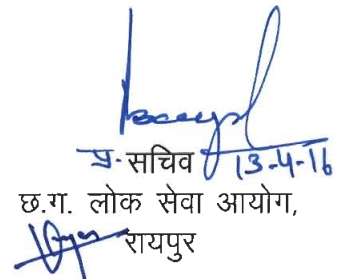 प्र. सचिव 13-4-16
छ.ग. लोक सेवा आयोग,
रायपुर